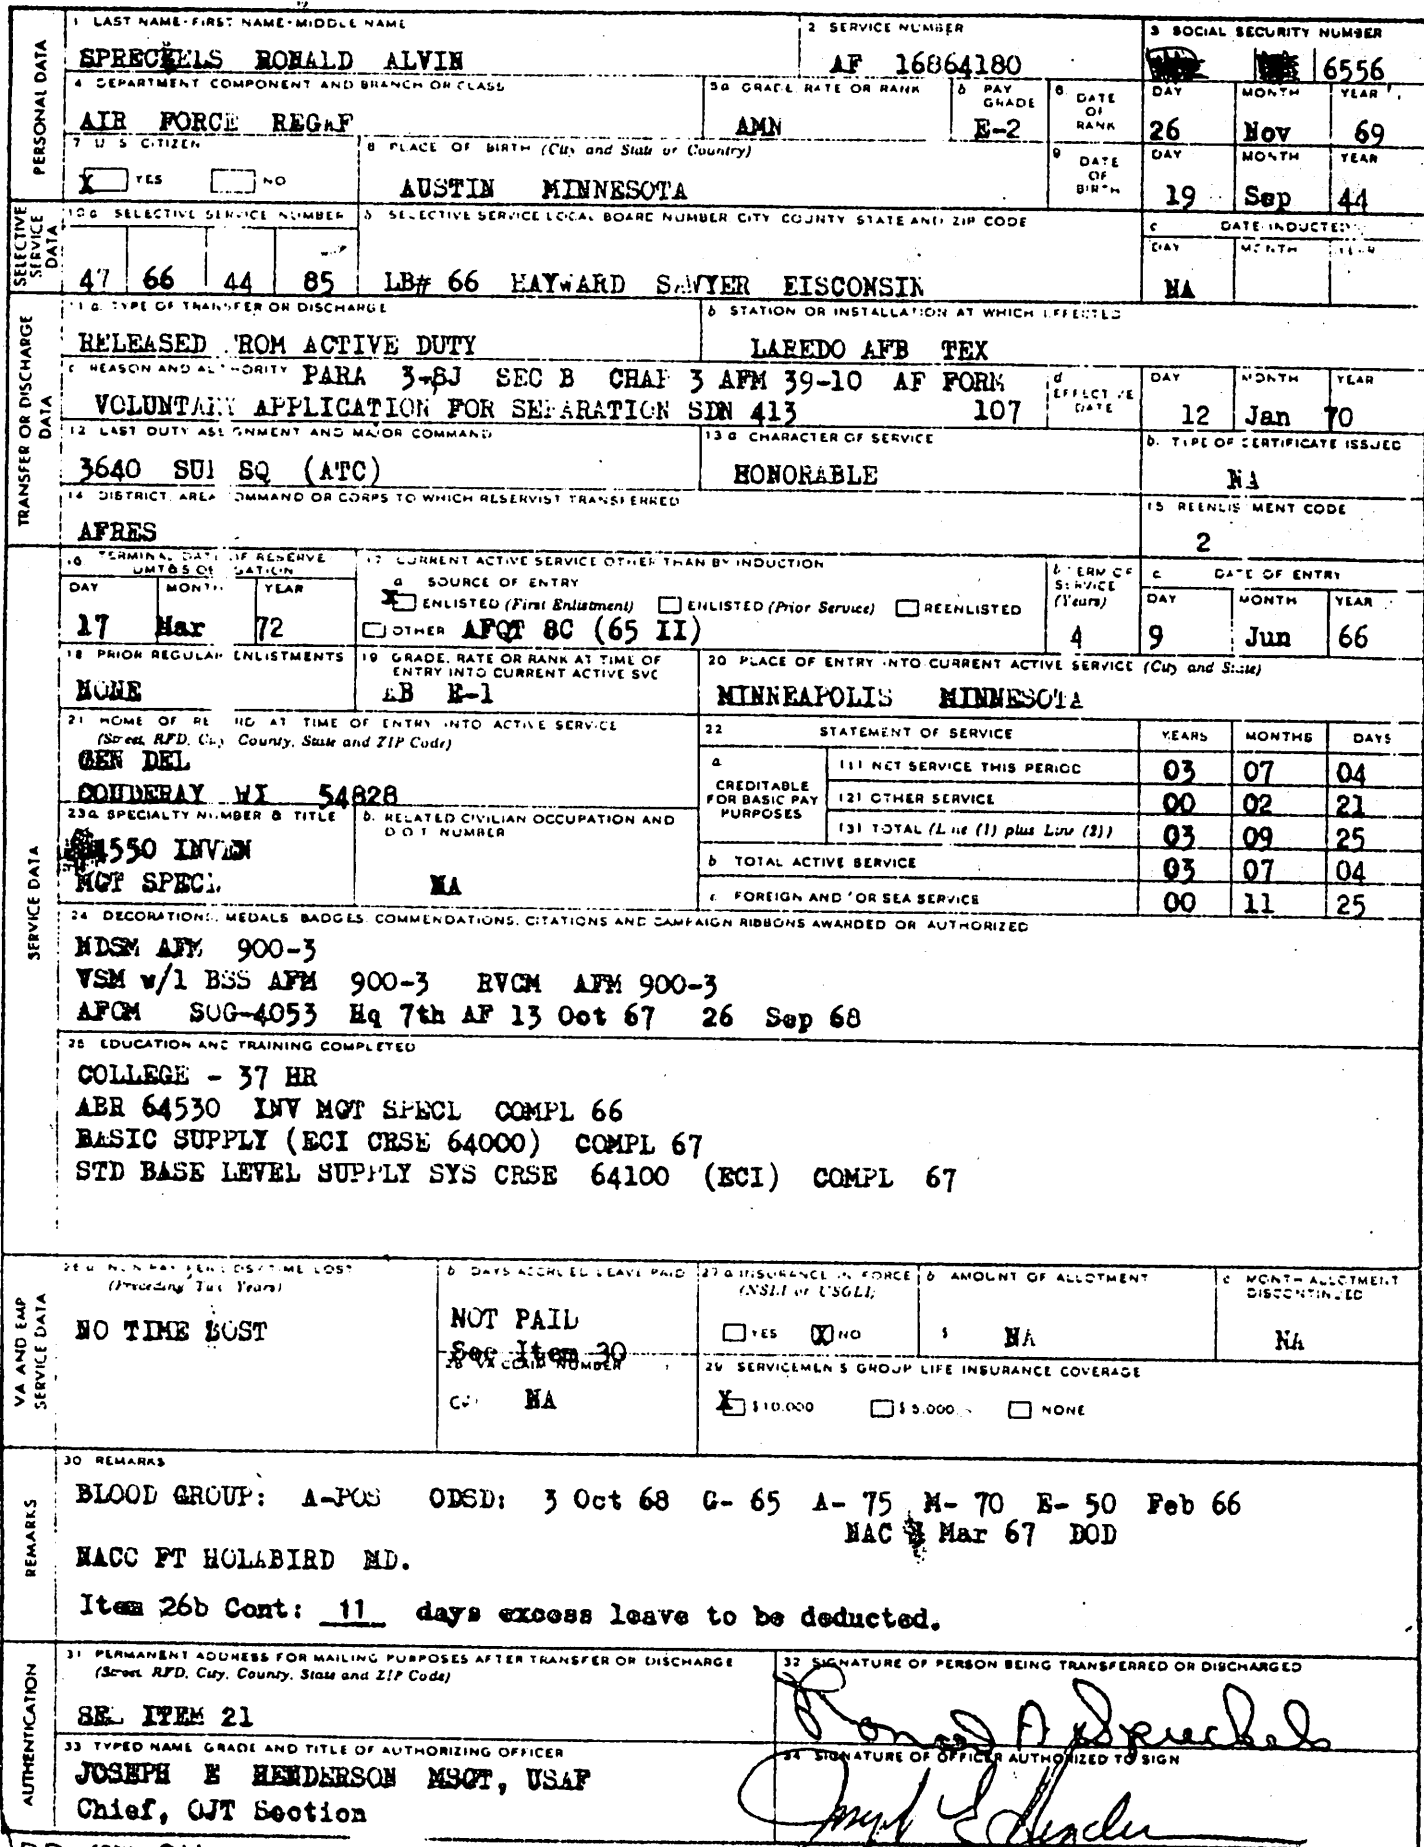 PERSONAL DATA
1 LAST NAME-FIRST NAME-MIDDLE NAME
SPRECKELS RONALD ALVIN
2 SERVICE NUMBER
AF 16864180
3 SOCIAL SECURITY NUMBER
6556
4 DEPARTMENT COMPONENT AND BRANCH OR CLASS
AIR FORCE REGAF
5a GRADE, RATE OR RANK
AMN
b PAY GRADE
E-2
6 DATE OF RANK
DAY MONTH YEAR
26 Nov 69
7 U S CITIZEN
X YES NO
8 PLACE OF BIRTH (City and State or Country)
AUSTIN MINNESOTA
9 DATE OF BIRTH
DAY MONTH YEAR
19 Sep 44
SELECTIVE SERVICE DATA
10a SELECTIVE SERVICE NUMBER
47 66 44 85
b SELECTIVE SERVICE LOCAL BOARD NUMBER CITY COUNTY STATE AND ZIP CODE
LB# 66 HAYWARD SAWYER EISCONSIN
c DATE INDUCTED
DAY MONTH YEAR
NA
TRANSFER OR DISCHARGE DATA
11a. TYPE OF TRANSFER OR DISCHARGE
RELEASED ROM ACTIVE DUTY
b STATION OR INSTALLATION AT WHICH EFFECTED
LAREDO AFB TEX
c REASON AND AUTHORITY PARA 3-8J SEC B CHAP 3 AFM 39-10 AF FORM
VOLUNTARY APPLICATION FOR SEPARATION SDN 413 107
d EFFECTIVE DATE
DAY MONTH YEAR
12 Jan 70
12 LAST DUTY ASSIGNMENT AND MAJOR COMMAND
3640 SUP SQ (ATC)
13a CHARACTER OF SERVICE
HONORABLE
b. TYPE OF CERTIFICATE ISSUED
NA
14 DISTRICT, AREA COMMAND OR CORPS TO WHICH RESERVIST TRANSFERRED
AFRES
15 REENLISTMENT CODE
2
SERVICE DATA
16 TERMINAL DATE OF RESERVE UMT&S OBLIGATION
DAY MONTH YEAR
17 Mar 72
17 CURRENT ACTIVE SERVICE OTHER THAN BY INDUCTION
a SOURCE OF ENTRY
X ENLISTED (First Enlistment) ENLISTED (Prior Service) REENLISTED
OTHER AFQT 8C (65 II)
b TERM OF SERVICE (Years)
4
c DATE OF ENTRY
DAY MONTH YEAR
9 Jun 66
18 PRIOR REGULAR ENLISTMENTS
NONE
19 GRADE, RATE OR RANK AT TIME OF ENTRY INTO CURRENT ACTIVE SVC
AB E-1
20 PLACE OF ENTRY INTO CURRENT ACTIVE SERVICE (City and State)
MINNEAPOLIS MINNESOTA
21 HOME OF RECORD AT TIME OF ENTRY INTO ACTIVE SERVICE
(Street, RFD, City, County, State and ZIP Code)
GEN DEL
COUDERAY WI 54828
22 STATEMENT OF SERVICE YEARS MONTHS DAYS
a CREDITABLE FOR BASIC PAY PURPOSES
(1) NET SERVICE THIS PERIOD 03 07 04
(2) OTHER SERVICE 00 02 21
(3) TOTAL (Line (1) plus Line (2)) 03 09 25
b TOTAL ACTIVE SERVICE 03 07 04
c FOREIGN AND/OR SEA SERVICE 00 11 25
23a SPECIALTY NUMBER & TITLE
4550 INVEN
MGT SPECL
b. RELATED CIVILIAN OCCUPATION AND D O T NUMBER
NA
24 DECORATIONS, MEDALS BADGES, COMMENDATIONS, CITATIONS AND CAMPAIGN RIBBONS AWARDED OR AUTHORIZED
NDSM AFM 900-3
VSM w/1 BSS AFM 900-3 RVCM AFM 900-3
AFCM SOG-4053 Hq 7th AF 13 Oct 67 26 Sep 68
25 EDUCATION AND TRAINING COMPLETED
COLLEGE - 37 HR
ABR 64530 INV MGT SPECL COMPL 66
BASIC SUPPLY (ECI CRSE 64000) COMPL 67
STD BASE LEVEL SUPPLY SYS CRSE 64100 (ECI) COMPL 67
VA AND EMP SERVICE DATA
26a NON PAY PERIODS/TIME LOST
(Preceding Two Years)
NO TIME LOST
b DAYS ACCRUED LEAVE PAID
NOT PAID
See Item 30
27a INSURANCE IN FORCE
(NSLI or USGLI)
YES X NO
b AMOUNT OF ALLOTMENT
$ NA
c MONTH ALLOTMENT DISCONTINUED
NA
28 VA CLAIM NUMBER
C- NA
29 SERVICEMEN'S GROUP LIFE INSURANCE COVERAGE
X $10,000 $5,000 NONE
REMARKS
30 REMARKS
BLOOD GROUP: A-POS ODSD: 3 Oct 68 G- 65 A- 75 M- 70 E- 50 Feb 66
NAC Mar 67 DOD
NACC FT HOLABIRD MD.
Item 26b Cont: 11 days excess leave to be deducted.
AUTHENTICATION
31 PERMANENT ADDRESS FOR MAILING PURPOSES AFTER TRANSFER OR DISCHARGE
(Street, RFD, City, County, State and ZIP Code)
SEE ITEM 21
32 SIGNATURE OF PERSON BEING TRANSFERRED OR DISCHARGED
Ronald A Spreckels
33 TYPED NAME GRADE AND TITLE OF AUTHORIZING OFFICER
JOSEPH E HENDERSON MSGT, USAF
Chief, OJT Section
34 SIGNATURE OF OFFICER AUTHORIZED TO SIGN